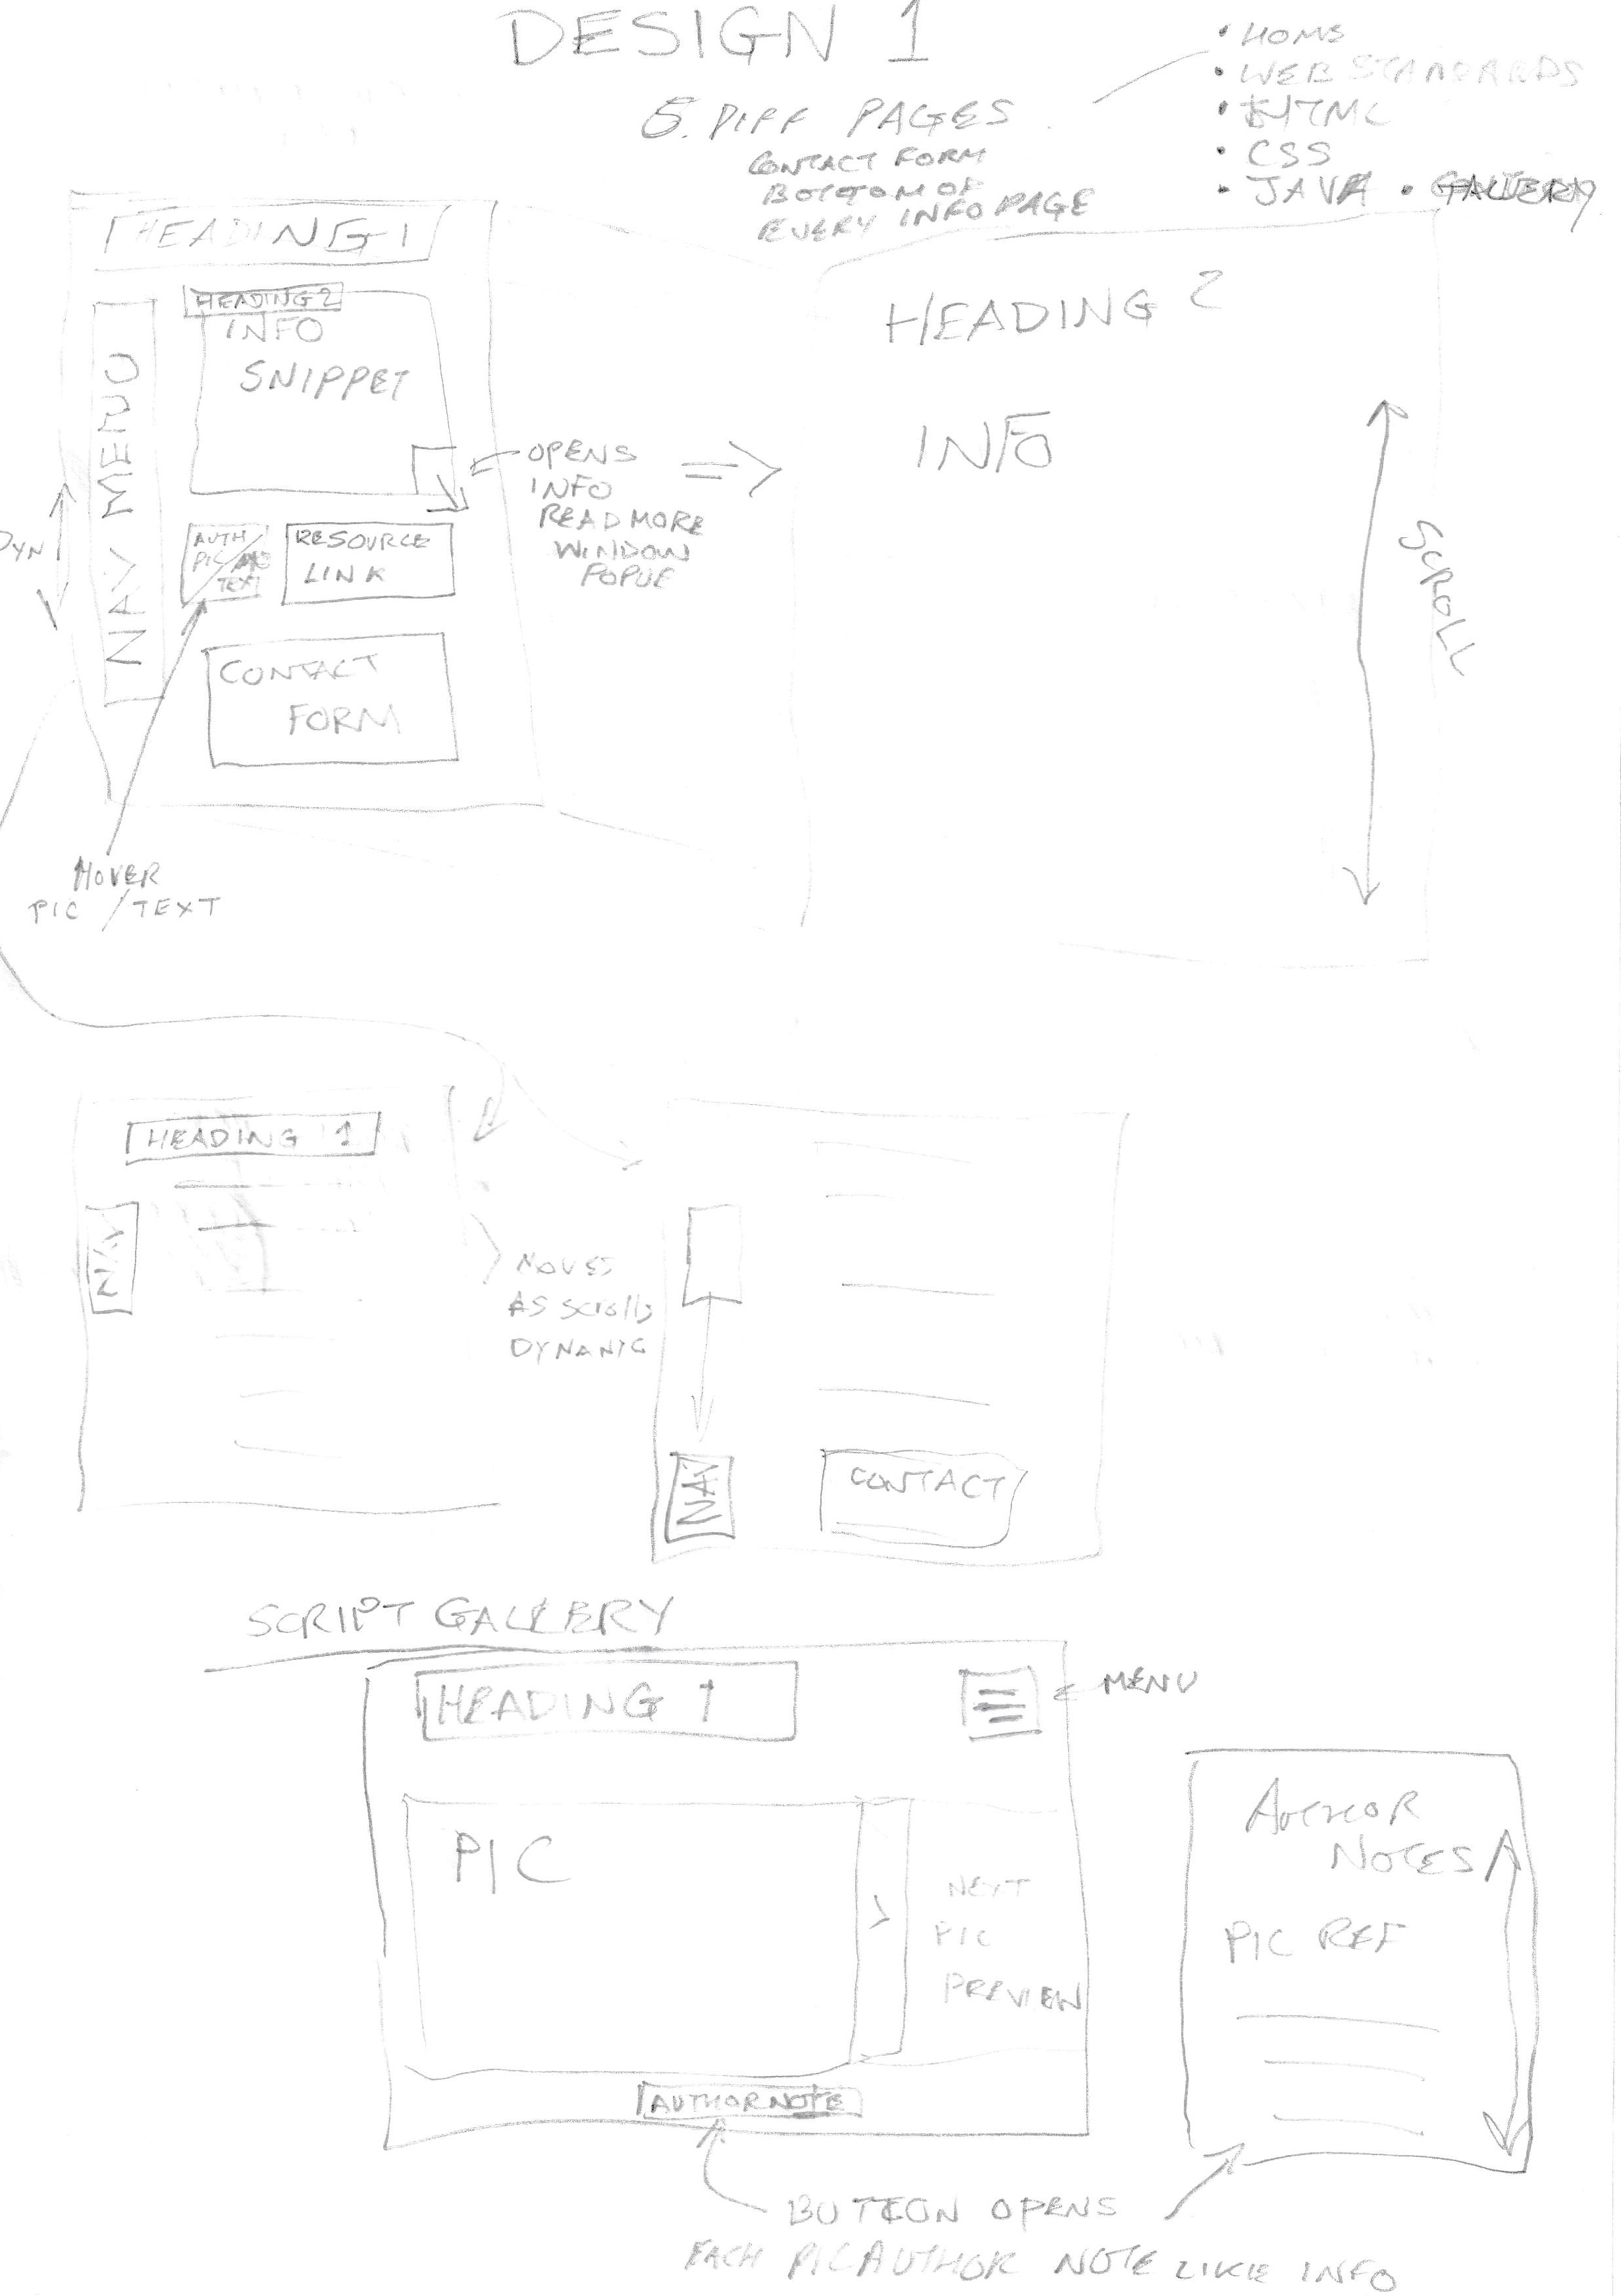 DESIGN 1
5. DIFF PAGES
CONTACT FORM
BOTTOM OF
EVERY INFO PAGE
• HOME
• WEB STANDARDS
• HTML
• CSS
• JAVA • GALLERY
HEADING 1
HEADING 2
INFO
SNIPPET
NAV MENU
DYN
AUTH
PIC/AND
TEXT
RESOURCE
LINK
CONTACT
FORM
OPENS
INFO
READ MORE
WINDOW
POPUP
=>
HEADING 2
INFO
SCROLL
HOVER
PIC / TEXT
HEADING 1
NAV
MOVES
AS SCROLLS
DYNAMIC
NAV
CONTACT
SCRIPT GALLERY
HEADING 1
MENU
PIC
>
NEXT
PIC
PREVIEW
AUTHOR NOTE
AUTHOR
NOTES
PIC REF
BUTTON OPENS
EACH PIC AUTHOR NOTE LIKE INFO